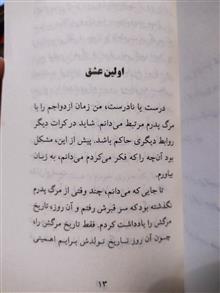 اولین عشق
درست یا نادرست، من زمان ازدواجم را با
مرگ پدرم مرتبط می‌دانم. شاید در کرات دیگر
روابط دیگری حاکم باشد. پیش از این، مشکل
بود آن‌چه را که فکر می‌کردم می‌دانم، به زبان
بیاورم.
تا جایی که می‌دانم، چند وقتی از مرگ پدرم
نگذشته بود که سر قبرش رفتم و آن روز، تاریخ
مرگش را یادداشت کردم. فقط تاریخ مرگش را،
چون آن روز تاریخ تولدش برایم اهمیتی
۱۳